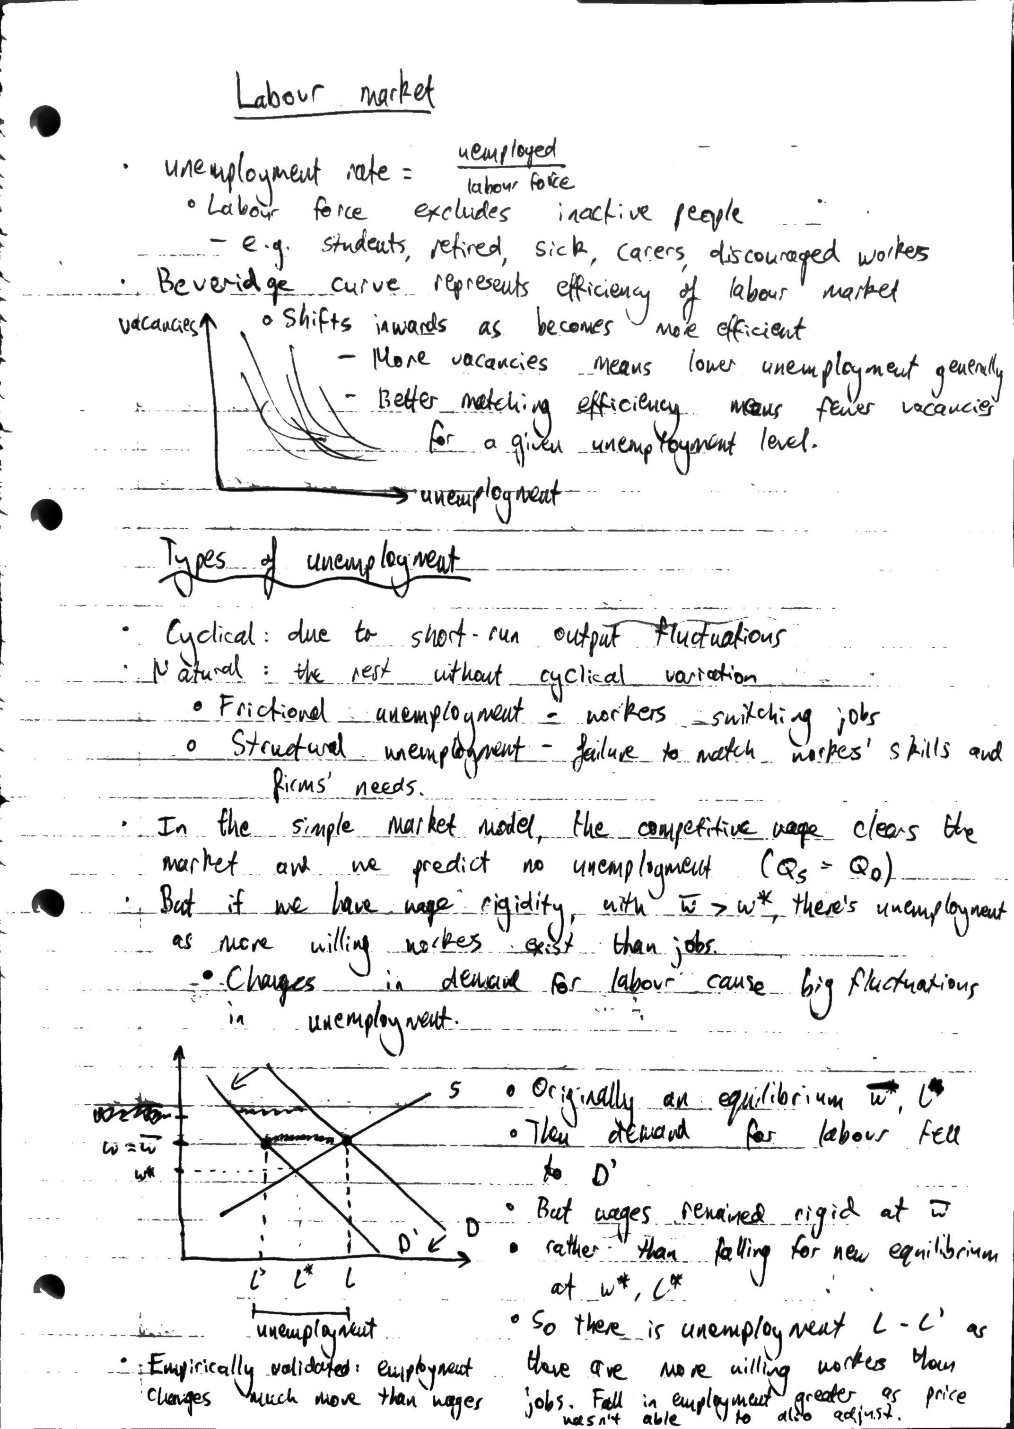 Labour market
· unemployment rate = uemployed / labour force
∘ Labour force excludes inactive people
– e.g. students, retired, sick, carers, discouraged workes
· Beveridge curve represents efficiency of labour market
vacancies
∘ Shifts inwards as becomes more efficient
– More vacancies means lower unemployment generally
– Better matching efficiency means fewer vacancies
for a given unemployment level.
unemployment
Types of unemployment
· Cyclical: due to short-run output fluctuations
· Natural: the rest without cyclical variation
• Frictional unemployment – workers switching jobs
∘ Structural unemployment – failure to match workers' skills and
firms' needs.
· In the simple market model, the competitive wage clears the
market and we predict no unemployment (Qs = QD)
· But if we have wage rigidity, with w̅ > w*, there's unemployment
as more willing workes exist than jobs.
• Changes in demand for labour cause big fluctuations
in unemployment.
S
w = w̅
w*
D'
D
L'
L*
L
unemployment
· Empirically validated: employment
changes much more than wages
∘ Originally an equilibrium w̅, L
• Then demand for labour fell
to D'
• But wages remained rigid at w̅
• rather than falling for new equilibrium
at w*, L*
∘ So there is unemployment L - L' as
there are more willing workers than
jobs. Fall in employment greater as price
wasn't able to also adjust.